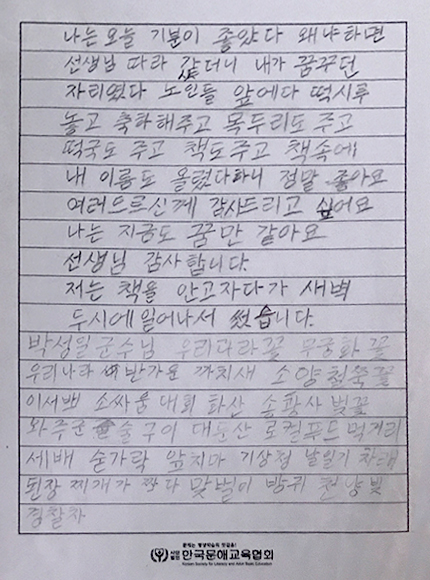 나는 오늘 기분이 좋았다 왜냐하면
선생님 따라 갔더니 내가 꿈꾸던
자리였다 노인들 앞에다 떡시루
놓고 축하해주고 목두리도 주고
떡국도 주고 책도주고 책속에
내 이름도 올렸다하니 정말 좋아요
여러으르신께 감사드리고 싶어요
나는 지금도 꿈만 같아요
선생님 감사합니다.
저는 책을 안고자다가 새벽
두시에 일어나서 썼습니다.
박성일군수님 우리다라꽃 무궁화 꽃
우리나라 반가운 까치새 소양철쭉꽃
이서뻐 소싸움 대회 화산 송광사 벚꽃
완주군 술 구이 대둔산 로컬푸드 먹거리
세배 숟가락 앞치마 기상청 날일기
된장 찌개가 짜다 맞벌이 방귀
경찰차
문해는 평생학습의 첫걸음!
사단법인 한국문해교육협회
Korean Society for Literacy and Adult Basic Education